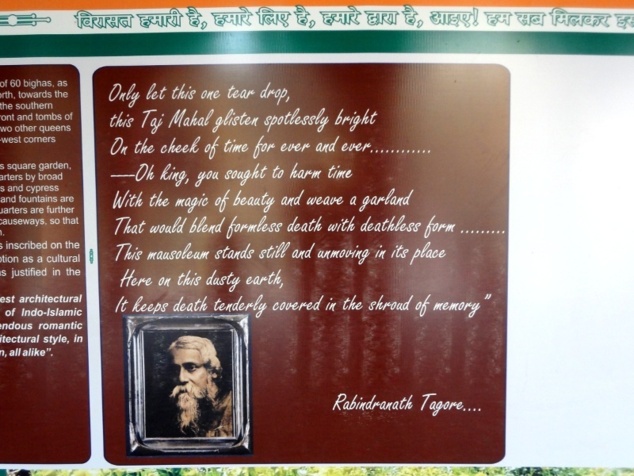 विरासत हमारी है, हमारे लिए है, हमारे द्वारा है, आइए! हम सब मिलकर इस
of 60 bighas, as
orth, towards the
the southern
ront and tombs of
wo other queens
-west corners
s square garden,
arters by broad
s and cypress
and fountains are
uarters are further
causeways, so that
n.
s inscribed on the
ption as a cultural
as justified in the
est architectural
of Indo-Islamic
endous romantic
itectural style, in
n, all alike".
Only let this one tear drop,
this Taj Mahal glisten spotlessly bright
On the cheek of time for ever and ever............
---Oh king, you sought to harm time
With the magic of beauty and weave a garland
That would blend formless death with deathless form .........
This mausoleum stands still and unmoving in its place
Here on this dusty earth,
It keeps death tenderly covered in the shroud of memory"
Rabindranath Tagore....